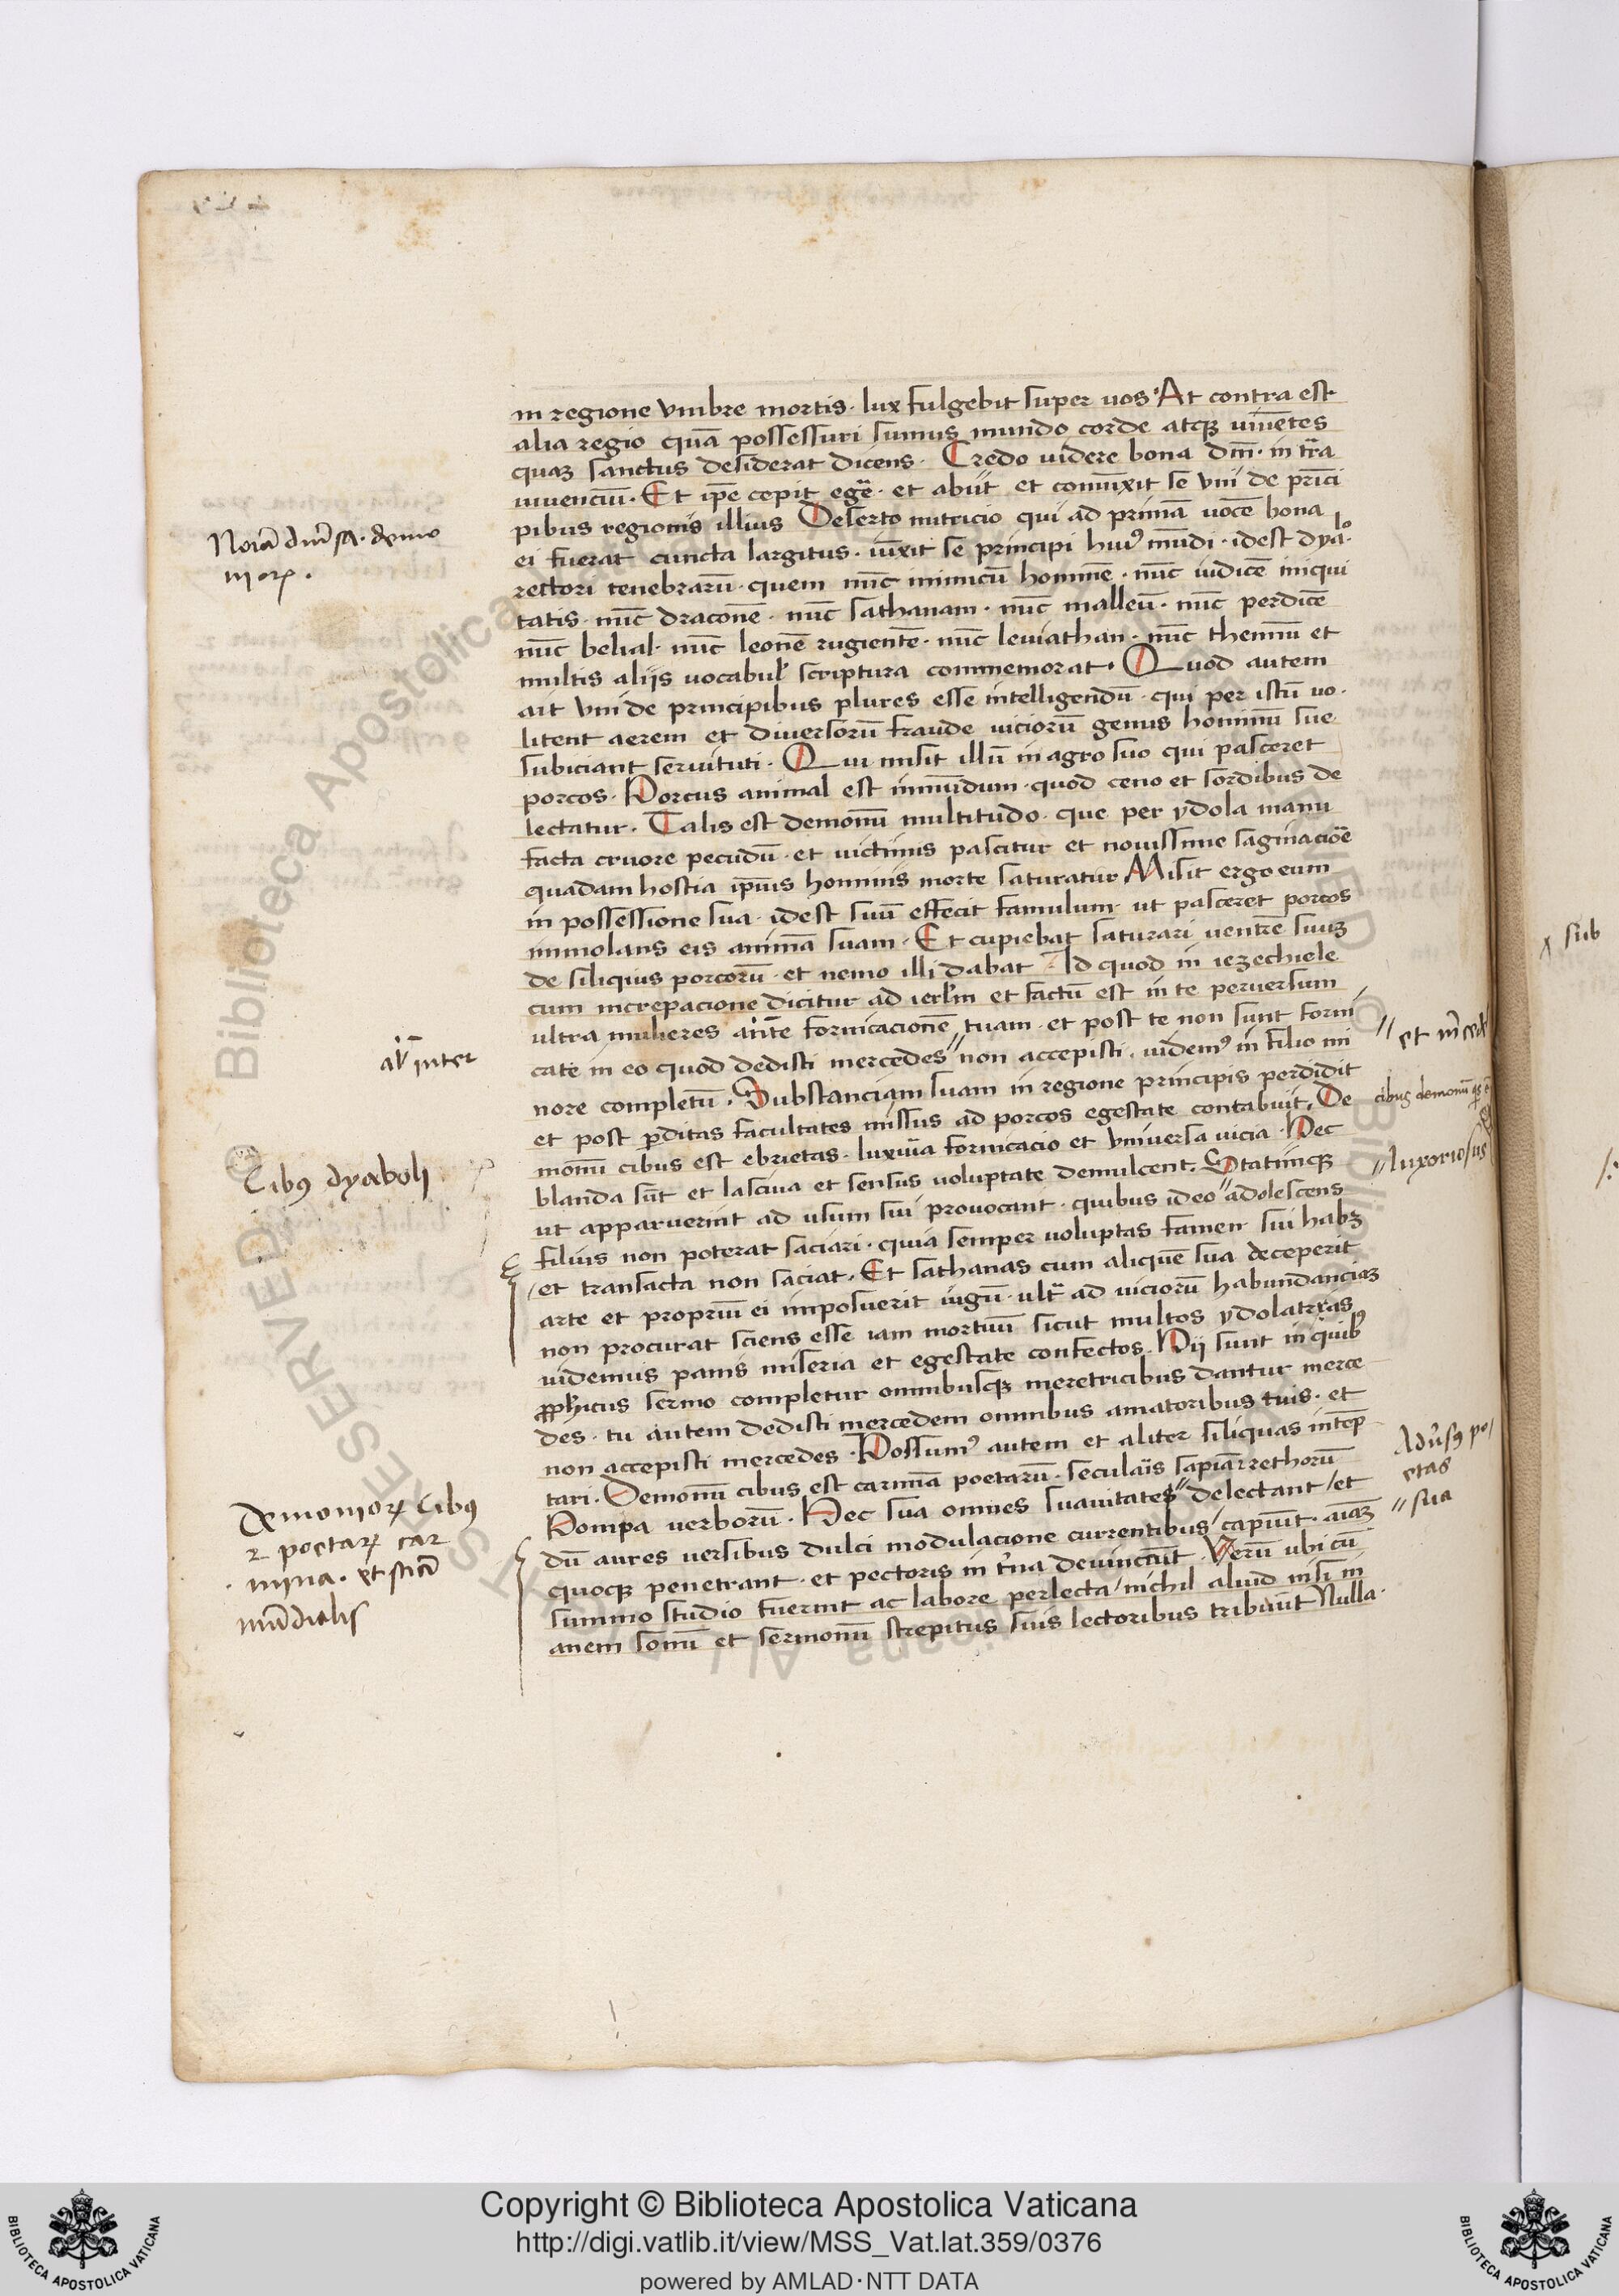 in regione vmbre mortis. lux fulgebit super uos. At contra est
alia regio quā possessuri sumus mundo corde atqꝫ uiuētes
quaꝫ sanctus desiderat dicens. Credo uidere bona dn̄i. in tr̄a
uiuenciū. Et ip̄e cepit egē. et abiit et coniūxit se vni de prīci
pibus regionis illius Deserto nutricio qui ad primā uocē bona
ei fuerat cuncta largitus. iūxit se principi huiꝰ mūdi. idest dyalo.
rectori tenebrarū. quem nūc inimicū hominē. nūc iudicē iniqui
tatis. nūc draconē. nūc sathanam. nūc malleū. nūc perdicē
nūc belial. nūc leonē rugientē. nūc leuiathan. nūc thennū et
multis aliis uocabul' scriptura commemorat. Quod autem
ait vni de principibus plures esse intelligendū. qui per istū uo.
litent aerem et diuersorū fraude uiciorū genus hominū sue
subiciant seruituti. Qui misit illū in agro suo qui pasceret
porcos. Porcus animal est inmūdum. quod ceno et sordibus de
lectatur. Talis est demonū multitudo. que per ydola manu
facta cruore pecudū. et uictimis pascitur et nouissime saginaciōe
quadam hostia ipsius hominis morte saturatur Misit ergo eum
in possessione sua. idest suū effecit famulum. ut pasceret porcos
immolans eis animā suam. Et cupiebat saturari uentrē suuꝫ
de siliquis porcorū. et nemo illi dabat Id quod in iezechiele
cum increpacione dicitur ad ierl'm et factū est in te peruersum
ultra mulieres ante fornicacionē tuam. et post te non sunt forni
cate in eo quod dedisti mercedes" non accepisti. uidemꝰ in filio mi
nore completū. Substanciam suam in regione principis perdidit
et post p̱ditas facultates missus ad porcos egestate contabuit. De
monū cibus est ebrietas. luxuria fornicacio et vniuersa uicia. Hec
blanda sūt et lasciua et sensus uoluptate demulcent. Statimqꝫ
ut apparuerint ad usum sui prouocant. quibus ideo" adolescens
filius non poterat saciari. quia semper uoluptas famen sui habꝫ
/et transacta non saciat. Et sathanas cum aliquē sua deceperit
arte et propriū ei imposuerit iugū. ult̄ ad uiciorū habundanciaꝫ
non procurat sciens esse iam mortuū sicut multos ydolatras
uidemus panis miseria et egestate confectos. Hii sunt in quibꝰ
ꝓph̄icus sermo completur omnibusqꝫ meretricibus dantur merce
des. tu autem dedisti mercedem omnibus amatoribus tuis. et
non accepisti mercedes. Possumꝰ autem et aliter siliquas intep̄
tari. Demonū cibus est carmīa poetarū. seculāis sapiār rethorū
Pompa verborū. Hec sua omnes suauitates" delectant /et
dū aures uersibus dulci modulacione currentibus /capiūt. aīaꝫ
quoqꝫ penetrant. et pectoris in t'na deuinciūt. Verū ubi cū
summo studio fuerint ac labore perlecta / nichil aliud nisi in
anem sonū et sermonū strepitus suis lectoribus tribuūt Nulla.
Noīa diu'sa. demo
nioꝝ.
al' inter
Cibꝰ dyaboli
Demonioꝝ Cibꝰ
poetaꝝ car
mina. et sciā
mūdialis
" et m'ced'
cibus demonū
" luxoriosus
Adu'sꝰ po/
etas
" sua
sub
© Biblioteca Apostolica
Copyright © Biblioteca Apostolica Vaticana
http://digi.vatlib.it/view/MSS_Vat.lat.359/0376
powered by AMLAD·NTT DATA
BIBLIOTECA APOSTOLICA VATICANA
BIBLIOTECA APOSTOLICA VATICANA